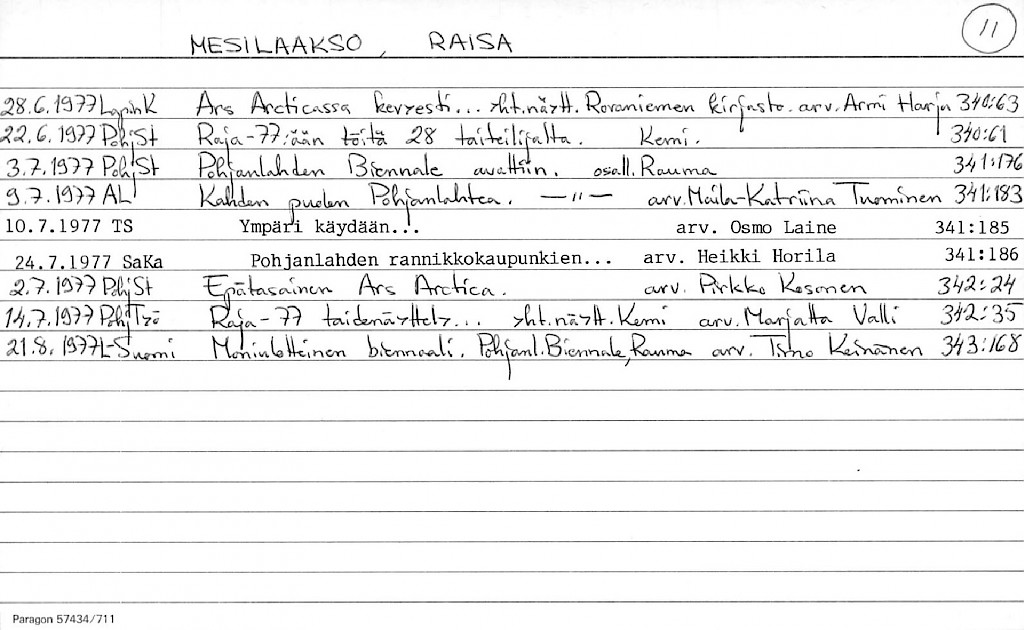 11
MESILAAKSO, RAISA
28.6.1977 LapinK Ars Arcticassa kevyesti... yht.näytt. Rovaniemen kirjasto. arv. Armi Harju 340:63
22.6.1977 PohjSt Raja-77:ään töitä 28 taiteilijalta. Kemi. 340:61
3.7.1977 PohjSt Pohjanlahden Biennale avattiin. osall. Rauma 341:176
9.7.1977 AL Kahden puolen Pohjanlahtea. —"— arv. Maila-Katriina Tuominen 341:183
10.7.1977 TS Ympäri käydään... arv. Osmo Laine 341:185
24.7.1977 SaKa Pohjanlahden rannikkokaupunkien... arv. Heikki Horila 341:186
2.7.1977 PohjSt Epätasainen Ars Arctica. arv. Pirkko Kesonen 342:24
14.7.1977 PohjTyö Raja-77 taidenäyttely... yht.näytt. Kemi arv. Marjatta Valli 342:35
21.8.1977 L-Suomi Moniulotteinen biennaali. Pohjanl. Biennale, Rauma arv. Timo Keinänen 343:168
Paragon 57434/711